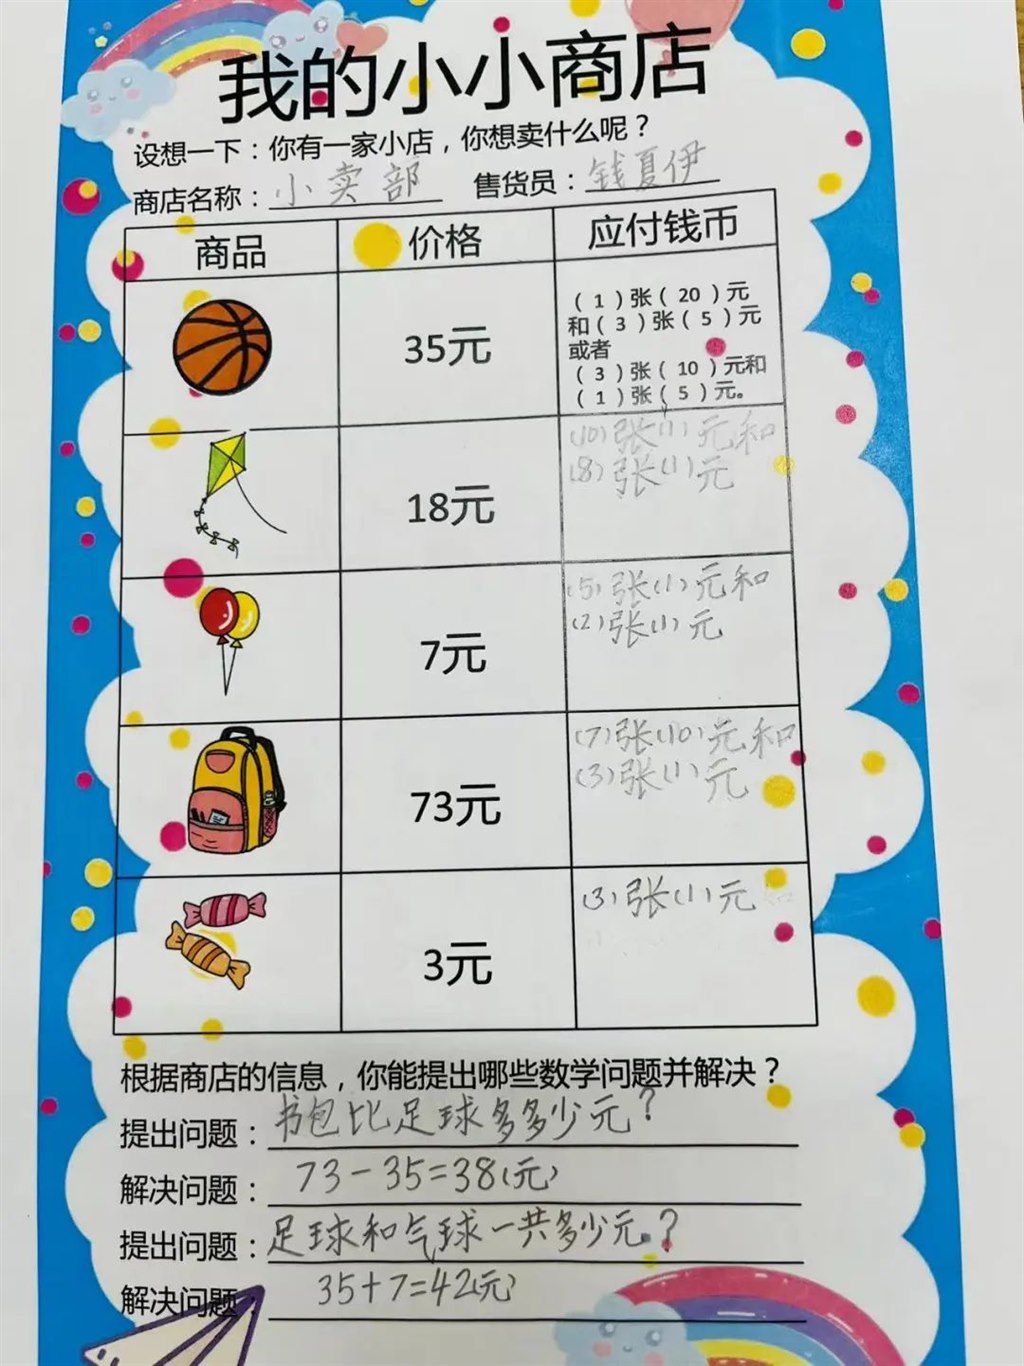 我的小小商店
设想一下：你有一家小店，你想卖什么呢？
商店名称：小卖部 售货员：钱夏伊
商品 价格 应付钱币
35元
（1）张（20）元
和（3）张（5）元
或者
（3）张（10）元和
（1）张（5）元。
18元
(10)张(1)元和
(8)张(1)元
7元
(5)张(1)元和
(2)张(1)元
73元
(7)张(10)元和
(3)张(1)元
3元
(3)张(1)元
根据商店的信息，你能提出哪些数学问题并解决？
提出问题：书包比足球多多少元？
解决问题：73-35=38(元)
提出问题：足球和气球一共多少元？
解决问题：35+7=42(元)